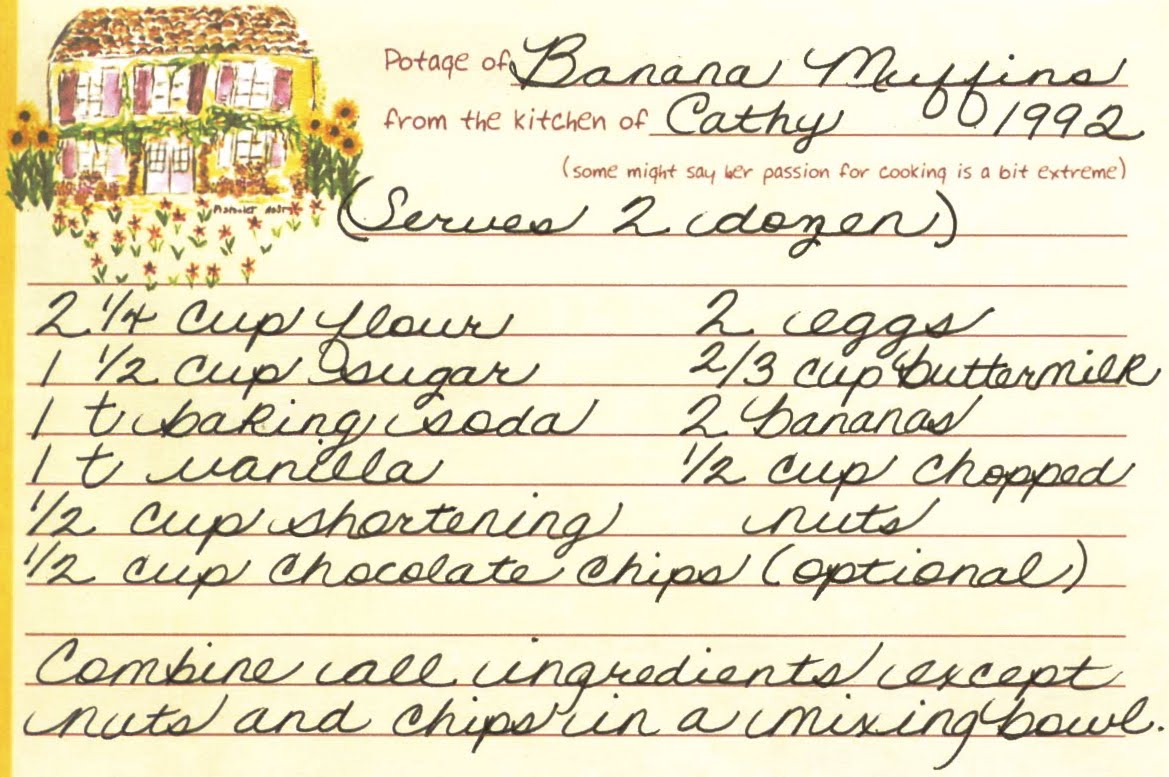 Potage of Banana Muffins
from the kitchen of Cathy 1992
(some might say her passion for cooking is a bit extreme)
(Serves 2 dozen)
2 1/4 cup flour 2 eggs
1 1/2 cup sugar 2/3 cup buttermilk
1 t baking soda 2 bananas
1 t vanilla 1/2 cup chopped
1/2 cup shortening nuts
1/2 cup chocolate chips (optional)
Combine all ingredients except
nuts and chips in a mixing bowl.